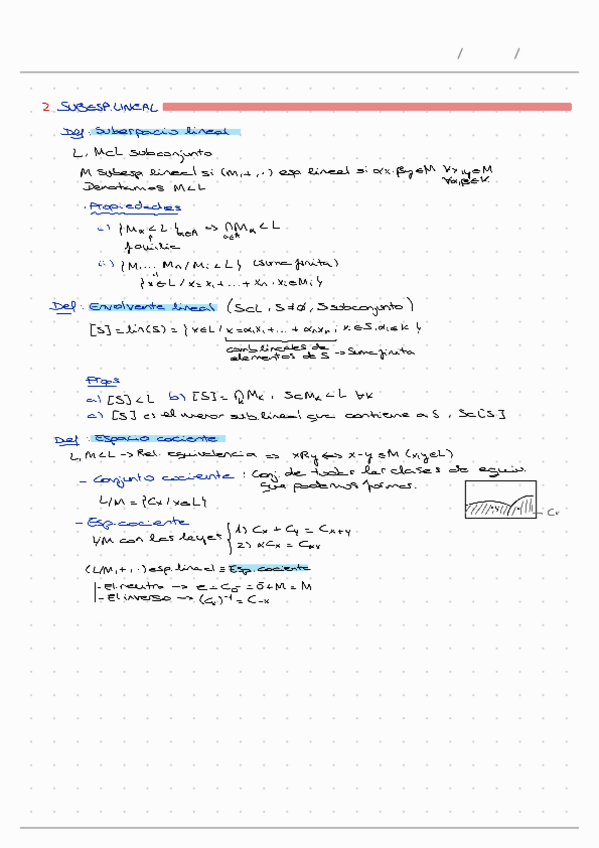 / /
2 SUBESP. LINEAL
Def: Subespacio lineal
L, M⊂L subconjunto
M subesp lineal si (M,+,·) esp lineal si αx·βy∈M ∀x,y∈M
∀α,β∈K.
Denotamos M<L
·Propiedades
i) {Mα<L}α∈A => ∩Mα<L
α∈A
familia
ii) {M1... Mn/Mi<L} (suma finita)
{x∈L / x=x1+...+xn · xi∈Mi}
Def: Envolvente lineal (S⊂L, S≠ø, S subconjunto)
[S]=lin(S)={x∈L/x=α1x1+...+αnxn; xi∈S,αi∈K}
comb lineales de
elementos de S → Suma finita
Props
a) [S]<L b) [S]=∩Mk, S⊂Mk<L ∀k
k
c) [S] es el menor sub.lineal que contiene a S, S⊂[S]
Def: Espacio cociente
L, M<L → Rel. equivalencia => xRy <=> x-y∈M (x,y∈L)
- Conjunto cociente: Conj de todas las clases de equiv.
que podemos formar.
L/M={Cx/x∈L}
Cx
- Esp. cociente
L/M con las leyes { 1) Cx+Cy=Cx+y
2) αCx=Cαx
(L/M,+,·) esp. lineal ≡ Esp. cociente
- El. neutro → e=C0̄=0̄+M=M
- El inverso → (Cx)⁻¹=C-x